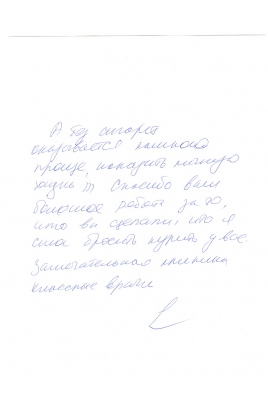 А без сигарет
оказывается намного
проще наладить личную
жизнь!!! Спасибо вам
большое ребята за то,
что вы сделали, что я
смог бросить курить у вас.
Замечательная клиника
классные врачи